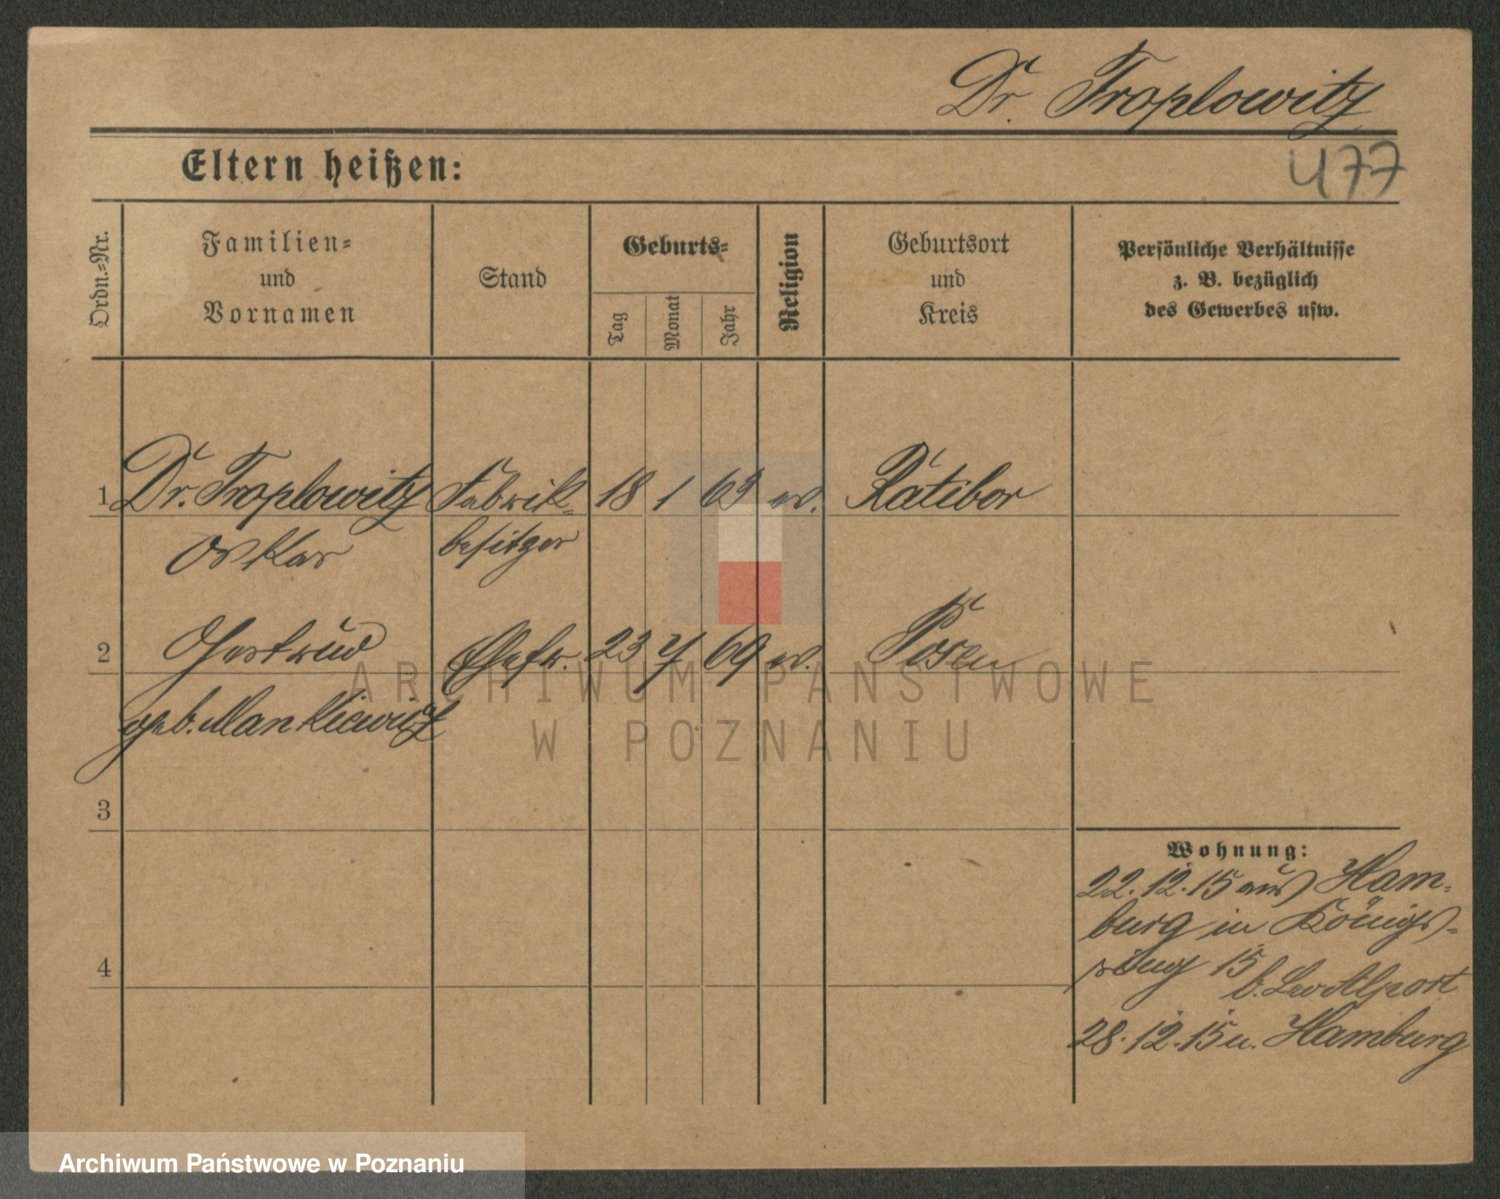 Dr. Troplowitz
477
Eltern heißen:
Ordn.-Nr.
Familien-
und
Vornamen
Stand
Geburts-
Tag
Monat
Jahr
Religion
Geburtsort
und
Kreis
Persönliche Verhältnisse
z. B. bezüglich
des Gewerbes usw.
1 Dr. Troplowitz Fabrik- 18 1 63 Ratibor
Oskar besitzer
2 Gertrud Ehefr. 23 7 69 Posen
geb. Mankiewicz
3
4
Wohnung:
22.12.15 aus Ham-
burg in Königs-
ring 15
b.
28.12.15 n. Hamburg
ARCHIWUM PAŃSTWOWE
W POZNANIU
Archiwum Państwowe w Poznaniu